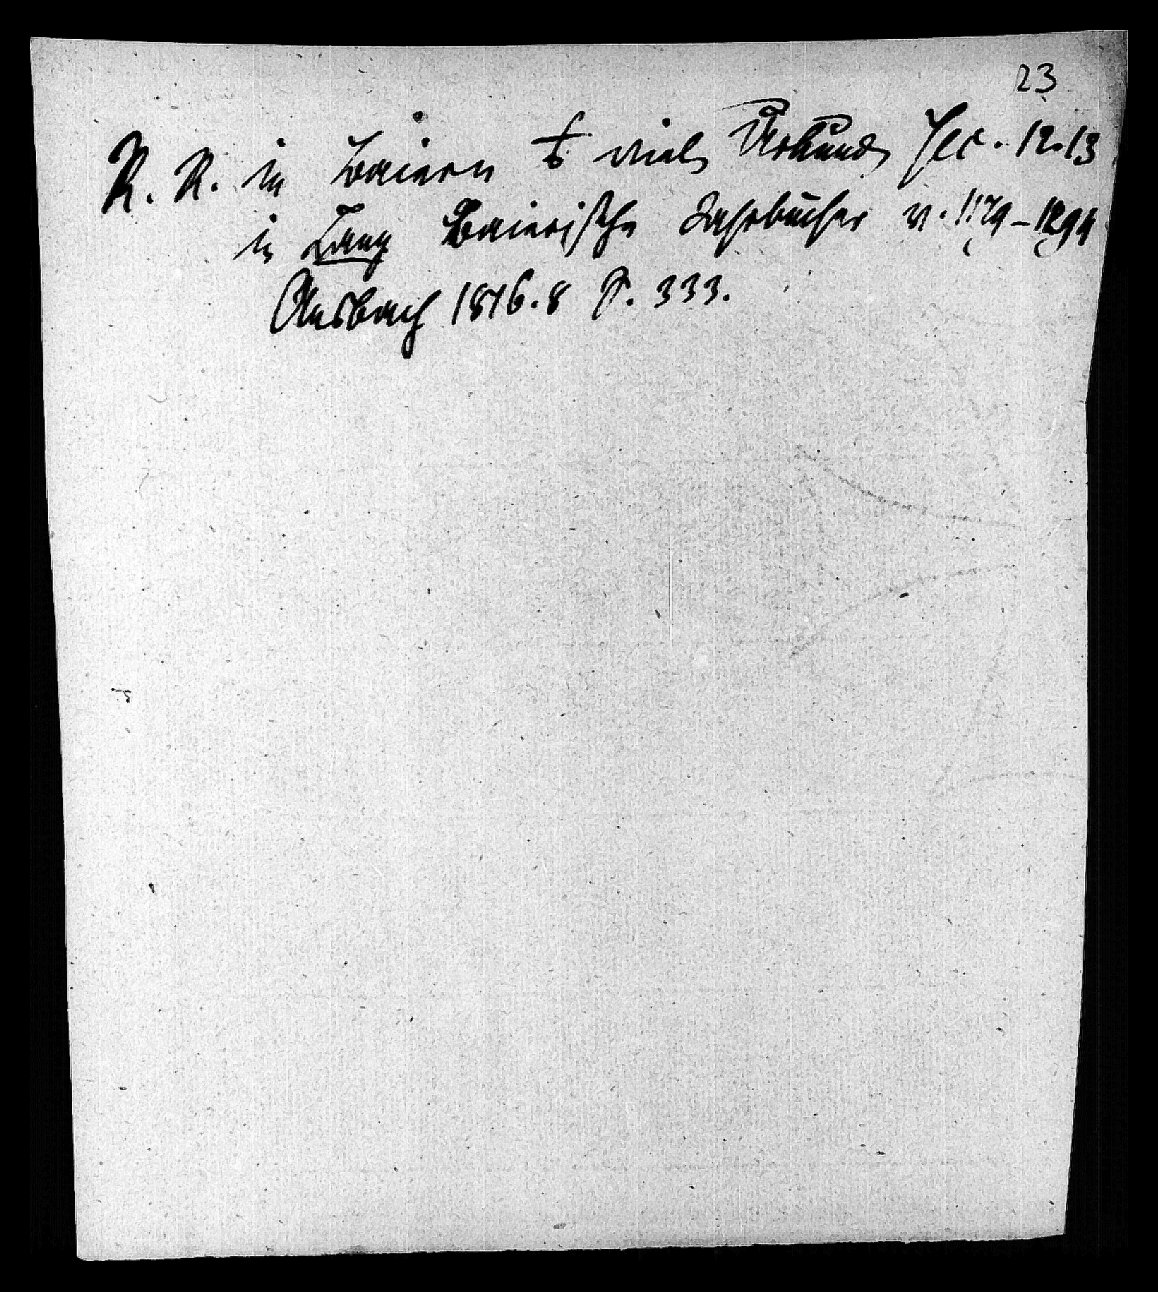 23
R. R. in Baiern & viele Urkunden Sec. 12.13
in Lang Bairische Jahrbücher v. 1179–1294
Ansbach 1816. 8 S. 333.